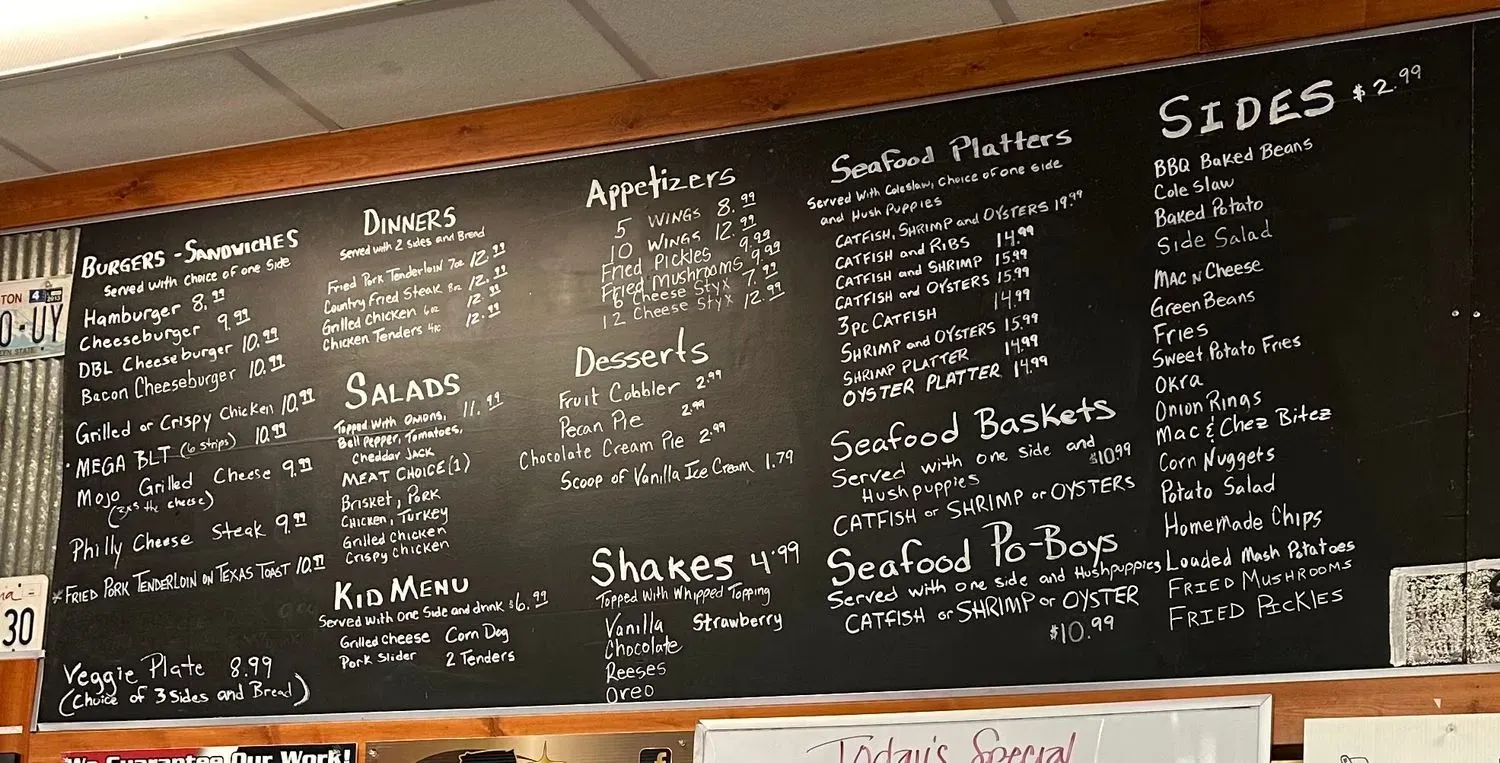 BURGERS - SANDWICHES
Served with choice of one Side
Hamburger 8.99
Cheeseburger 9.99
DBL Cheeseburger 10.99
Bacon Cheeseburger 10.99
Grilled or Crispy Chicken 10.99
• MEGA BLT (6 strips) 10.99
Mojo Grilled Cheese 9.99
(3xs the cheese)
Philly Cheese Steak 9.99
* FRIED PORK TENDERLOIN ON TEXAS TOAST 10.99
Veggie Plate 8.99
(Choice of 3 Sides and Bread)
DINNERS
Served with 2 Sides and Bread
Fried Pork Tenderloin 7oz 12.99
Country Fried Steak 8oz 12.99
Grilled Chicken 6oz 12.99
Chicken Tenders 4pc 12.99
SALADS
Topped With Onions, 11.99
Bell Pepper, Tomatoes,
Cheddar JACK
MEAT CHOICE (1)
Brisket, Pork
Chicken, Turkey
Grilled Chicken
Crispy Chicken
KID MENU
Served with One Side and drink $6.99
Grilled Cheese Corn Dog
Pork Slider 2 Tenders
Appetizers
5 WINGS 8.99
10 WINGS 12.99
Fried Pickles 9.99
Fried Mushrooms 9.99
6 Cheese Styx 7.99
12 Cheese Styx 12.99
Desserts
Fruit Cobbler 2.99
Pecan Pie 2.99
Chocolate Cream Pie 2.99
Scoop of Vanilla Ice Cream 1.79
Shakes 4.99
Topped With Whipped Topping
Vanilla Strawberry
Chocolate
Reeses
Oreo
Seafood Platters
Served With Coleslaw, Choice of one side
and Hush Puppies
CATFISH, SHRIMP and OYSTERS 19.99
CATFISH and RIBS 14.99
CATFISH and SHRIMP 15.99
CATFISH and OYSTERS 15.99
3pc CATFISH 14.99
SHRIMP and OYSTERS 15.99
SHRIMP PLATTER 14.99
OYSTER PLATTER 14.99
Seafood Baskets
Served with one side and
Hushpuppies $10.99
CATFISH or SHRIMP or OYSTERS
Seafood Po-Boys
Served with one side and Hushpuppies
CATFISH or SHRIMP or OYSTER
$10.99
SIDES $2.99
BBQ Baked Beans
Cole Slaw
Baked Potato
Side Salad
Mac N Cheese
Green Beans
Fries
Sweet Potato Fries
Okra
Onion Rings
Mac & Chez Bitez
Corn Nuggets
Potato Salad
Homemade Chips
Loaded Mash Potatoes
FRIED MUSHROOMS
FRIED PICKLES
TON 4 2013
O-UY
30
We Guarantee Our Work!
f
Today's Special